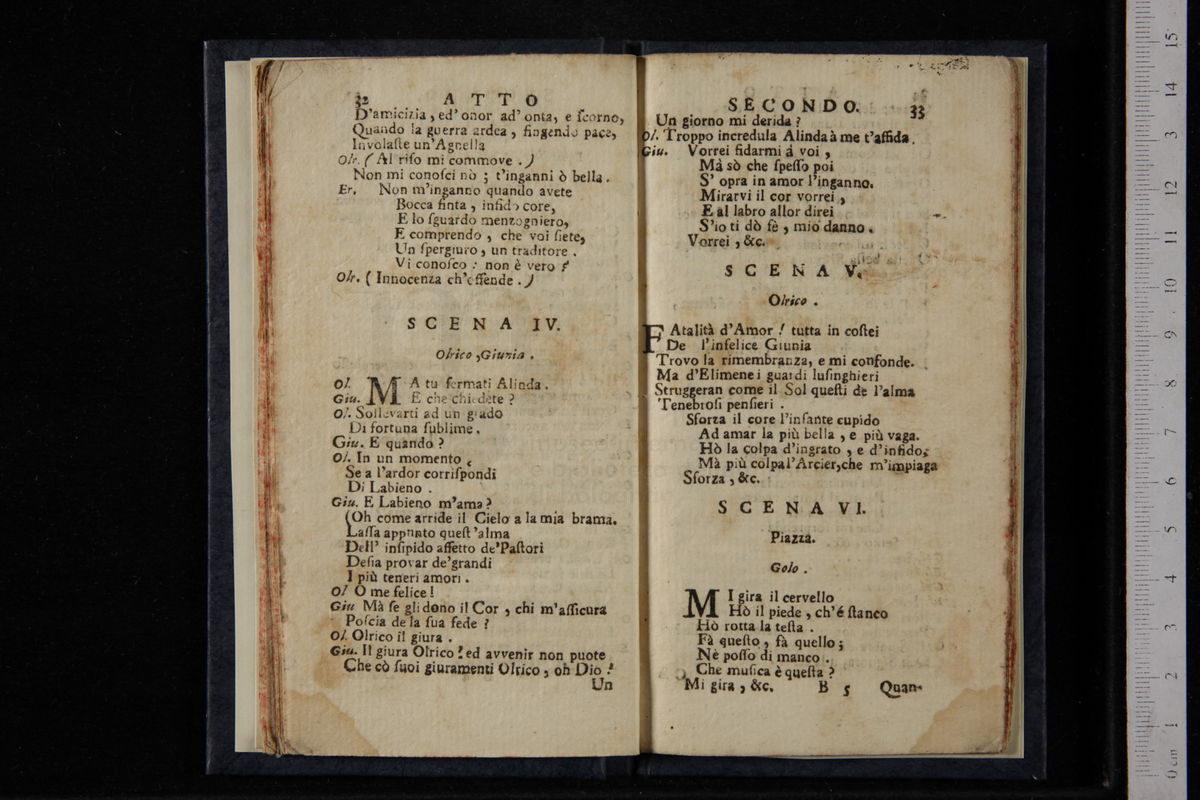 32 ATTO
D'amicizia, ed' onor ad' onta, e ſcorno,
Quando la guerra ardea, fingendo pace,
Involaſte un'Agnella
Olr. (Al riſo mi commove.)
Non mi conoſci nò; t'inganni ò bella.
Er. Non m'inganno quando avete
Bocca finta, infido core,
E lo ſguardo menzogniero,
E comprendo, che voi ſiete,
Un ſpergiuro, un traditore.
Vi conoſco: non è vero?
Olr. (Innocenza ch'offende.)
SCENA IV.
Olrico, Giunia.
Ol. MA tu fermati Alinda.
Giu. E che chiedete?
Ol. Sollevarti ad un grado
Di fortuna ſublime.
Giu. E quando?
Ol. In un momento,
Se a l'ardor corriſpondi
Di Labieno.
Giu. E Labieno m'ama?
(Oh come arride il Cielo a la mia brama.
Laſſa appunto queſt'alma
Dell' inſipido affetto de'Paſtori
Deſia provar de'grandi
I più teneri amori.
Ol O me felice!
Giu Mà ſe gli dono il Cor, chi m'aſſicura
Poſcia de la ſua fede?
Ol. Olrico il giura.
Giu. Il giura Olrico? ed avvenir non puote
Che cò ſuoi giuramenti Olrico, oh Dio!
Un
SECONDO. 33
Un giorno mi derida?
Ol. Troppo incredula Alinda à me t'affida.
Giu. Vorrei fidarmi à voi,
Mà sò che ſpeſſo poi
S' opra in amor l'inganno.
Mirarvi il cor vorrei,
E al labro allor direi
S'io ti dò fè, mio danno.
Vorrei, &c.
SCENA V.
Olrico.
FAtalità d'Amor! tutta in coſtei
De l'infelice Giunia
Trovo la rimembranza, e mi confonde.
Ma d'Elimene i guardi luſinghieri
Struggeran come il Sol queſti de l'alma
Tenebroſi penſieri.
Sforza il core l'infante cupido
Ad amar la più bella, e più vaga.
Hò la colpa d'ingrato, e d'infido,
Mà più colpa l'Arcier, che m'impiaga
Sforza, &c.
SCENA VI.
Piazza.
Golo.
MI gira il cervello
Hò il piede, ch'é ſtanco
Hò rotta la teſta.
Fà queſto, fà quello;
Nè poſſo di manco.
Che muſica è queſta?
Mi gira, &c. B 5 Quan-
0 cm 1 2 3 4 5 6 7 8 9 10 11 12 13 14 15